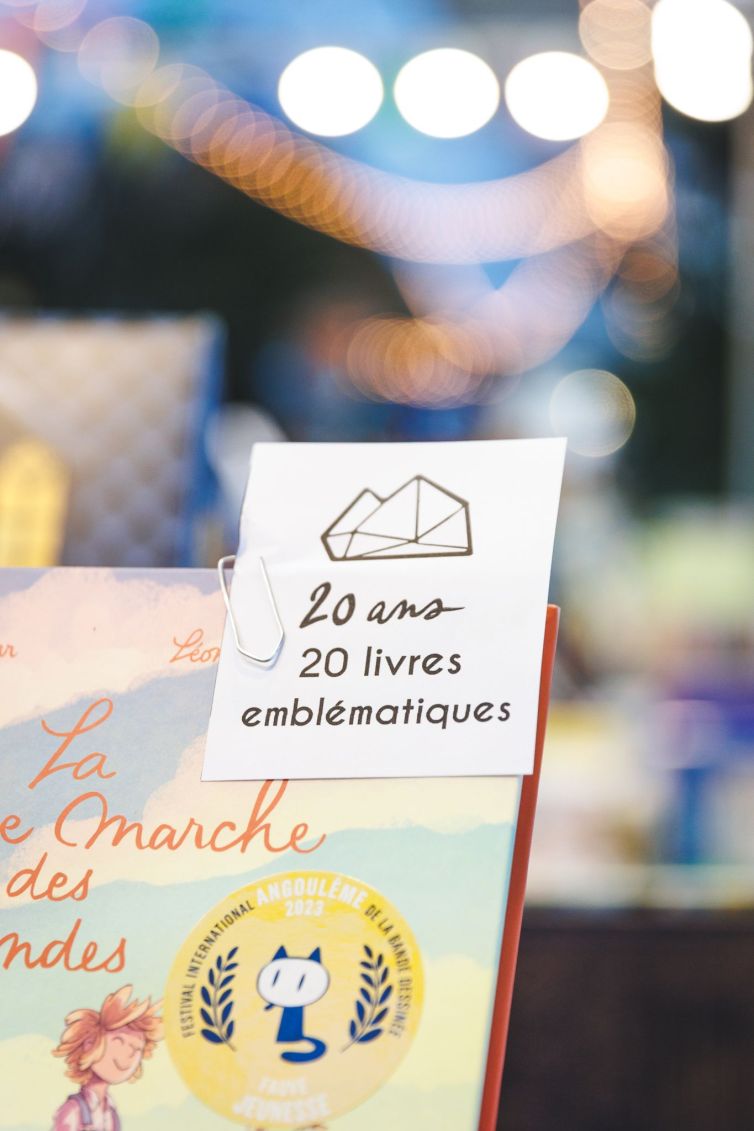 20 ans
20 livres
emblématiques
Léon
La
e Marche
des
ndes
FESTIVAL INTERNATIONAL ANGOULÊME DE LA BANDE DESSINÉE
2023
FAUVE
JEUNESSE